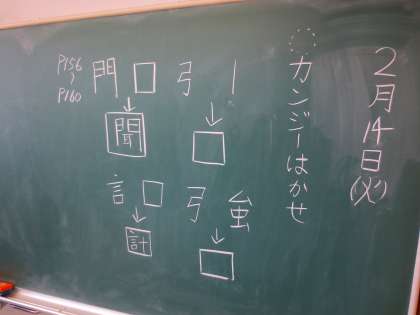 2月14日(火)
カンジーはかせ
弓 丨
門 □
聞
P156
〜
P160
弓 虫
言 □
計